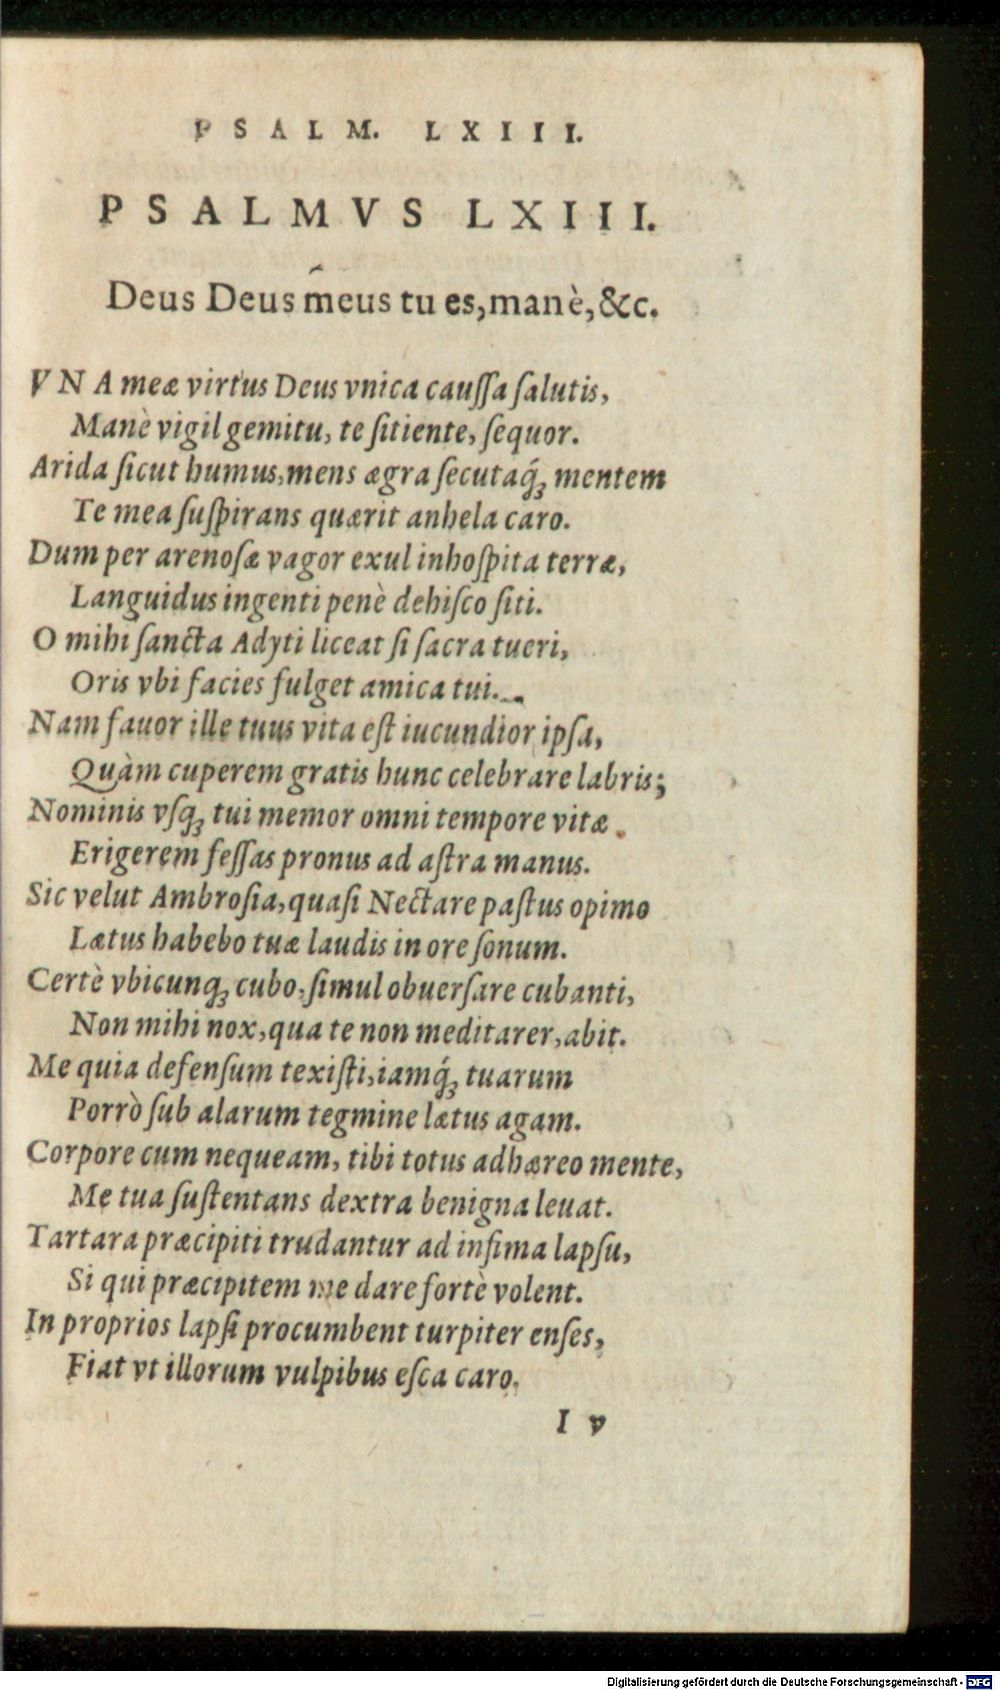 PSALM. LXIII.
PSALMVS LXIII.
Deus Deus meus tu es, manè, &c.
VNA meæ virtus Deus vnica cauſſa ſalutis,
Manè vigil gemitu, te ſitiente, ſequor.
Arida ſicut humus, mens ægra ſecutaq́ꝫ mentem
Te mea ſuſpirans quærit anhela caro.
Dum per arenoſæ vagor exul inhoſpita terræ,
Languidus ingenti penè dehiſco ſiti.
O mihi ſancta Adyti liceat ſi ſacra tueri,
Oris vbi facies fulget amica tui.
Nam fauor ille tuus vita eſt iucundior ipſa,
Quàm cuperem gratis hunc celebrare labris;
Nominis vſqꝫ tui memor omni tempore vitæ.
Erigerem feſſas pronus ad aſtra manus.
Sic velut Ambroſia, quaſi Nectare paſtus opimo
Lætus habebo tuæ laudis in ore ſonum.
Certè vbicunqꝫ cubo, ſimul obuerſare cubanti,
Non mihi nox, qua te non meditarer, abit.
Me quia defenſum texiſti, iamq́ꝫ tuarum
Porrò ſub alarum tegmine lætus agam.
Corpore cum nequeam, tibi totus adhæreo mente,
Me tua ſuſtentans dextra benigna leuat.
Tartara præcipiti trudantur ad infima lapſu,
Si qui præcipitem me dare fortè volent.
In proprios lapſi procumbent turpiter enſes,
Fiat vt illorum vulpibus eſca caro.
I v
Digitalisierung gefördert durch die Deutsche Forschungsgemeinschaft - DFG